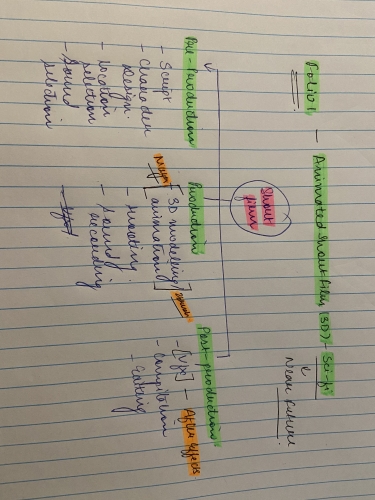 Folio 1 — Animated Short film (3D) - Sci-fi
Near future
Short film
Pre-Production
- Script
- Character Design
- Location selection
- Sound selection
Production
Maya - [3D modelling/ animation]
- shooting
- Sound recording
Post-production
- [Vfx] - After effects
- Compositing
- Editing